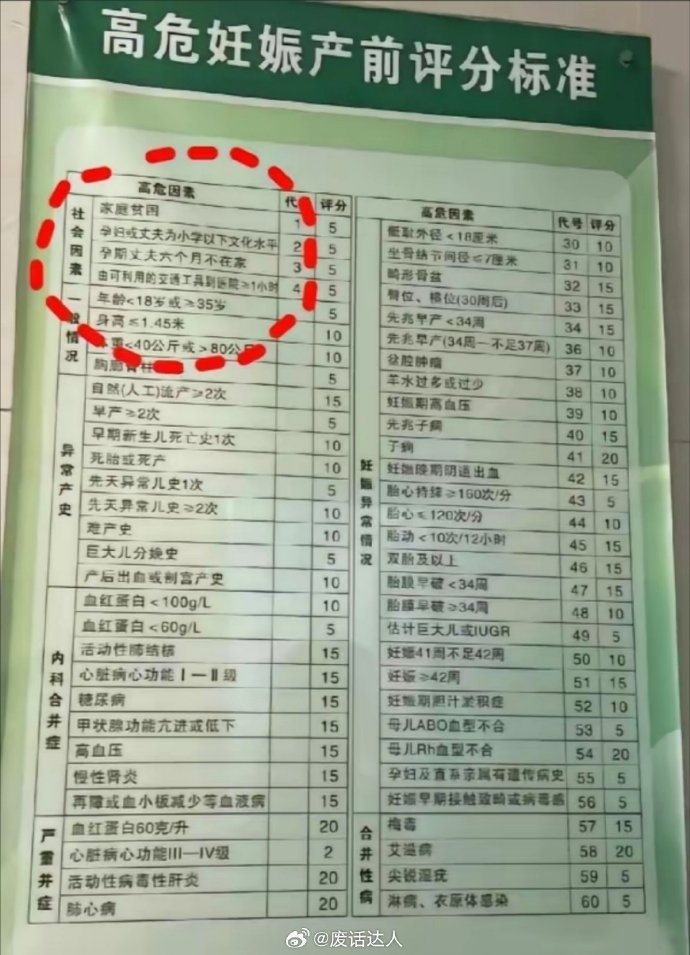 高危妊娠产前评分标准
高危因素 代 评分
社会因素
家庭贫困 1 5
孕妇或丈夫为小学以下文化水平 2 5
孕期丈夫六个月不在家 3 5
由可利用的交通工具到医院≥1小时 4 5
一般情况
年龄<18岁或≥35岁 5
身高≤1.45米 10
体重<40公斤或>80公斤 10
胸廓脊柱 5
异常产史
自然(人工)流产≥2次 15
早产≥2次 5
早期新生儿死亡史1次 10
死胎或死产 10
先天异常儿史1次 5
先天异常儿史≥2次 10
难产史 10
巨大儿分娩史 5
产后出血或剖宫产史 10
内科合并症
血红蛋白<100g/L 10
血红蛋白<60g/L 5
活动性肺结核 15
心脏病心功能Ⅰ—Ⅱ级 15
糖尿病 15
甲状腺功能亢进或低下 15
高血压 15
慢性肾炎 15
再障或血小板减少等血液病 15
严重并症
血红蛋白60克/升 20
心脏病心功能III—IV级 2
活动性病毒性肝炎 20
肺心病 20
高危因素 代号 评分
妊娠异常情况
骶耻外径<18厘米 30 10
坐骨结节间径≤7厘米 31 10
畸形骨盆 32 15
臀位、横位(30周后) 33 15
先兆早产<34周 34 15
先兆早产(34周—不足37周) 36 10
盆腔肿瘤 37 10
羊水过多或过少 38 10
妊娠期高血压 39 10
先兆子痫 40 15
子痫 41 20
妊娠晚期阴道出血 42 15
胎心持续≥160次/分 43 5
胎心≤120次/分 44 10
胎动<10次/12小时 45 15
双胎及以上 46 15
胎膜早破<34周 47 15
胎膜早破≥34周 48 10
估计巨大儿或IUGR 49 5
妊娠41周不足42周 50 10
妊娠≥42周 51 15
妊娠期胆汁淤积症 52 10
母儿ABO血型不合 53 5
母儿Rh血型不合 54 20
孕妇及直系亲属有遗传病史 55 5
妊娠早期接触致畸或病毒感 56 5
合并性病
梅毒 57 15
艾滋病 58 20
尖锐湿疣 59 5
淋病、衣原体感染 60 5
@废话达人